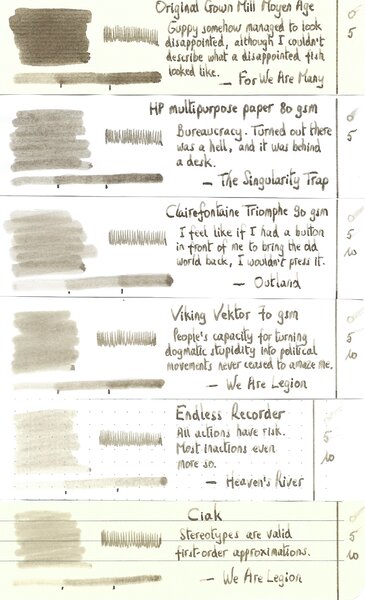 Original Crown Mill Moyen Age
Guppy somehow managed to look
disappointed, although I couldn't
describe what a disappointed fish
looked like.
— For We Are Many
0
5
HP multipurpose paper 80 gsm
Bureaucracy. Turned out there
was a hell, and it was behind
a desk.
— The Singularity Trap
0
5
Clairefontaine Triomphe 90 gsm
I feel like if I had a button
in front of me to bring the old
world back, I wouldn't press it.
— Outland
0
5
10
Viking Vektor 70 gsm
People's capacity for turning
dogmatic stupidity into political
movements never ceased to amaze me.
— We Are Legion
0
5
10
Endless Recorder
All actions have risk.
Most inactions even
more so.
— Heaven's River
0
5
10
Ciak
Stereotypes are valid
first-order approximations.
— We Are Legion
0
5
10